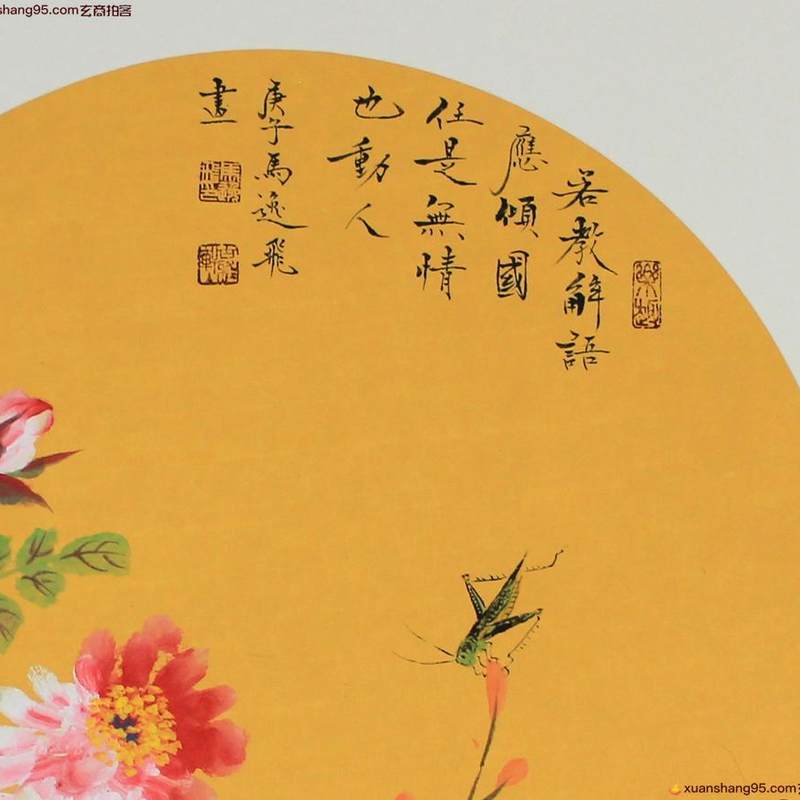 shang95.com玄商拍客
若教解語
應傾國
任是無情
也動人
庚子馬逸飛
畫
xuanshang95.com玄